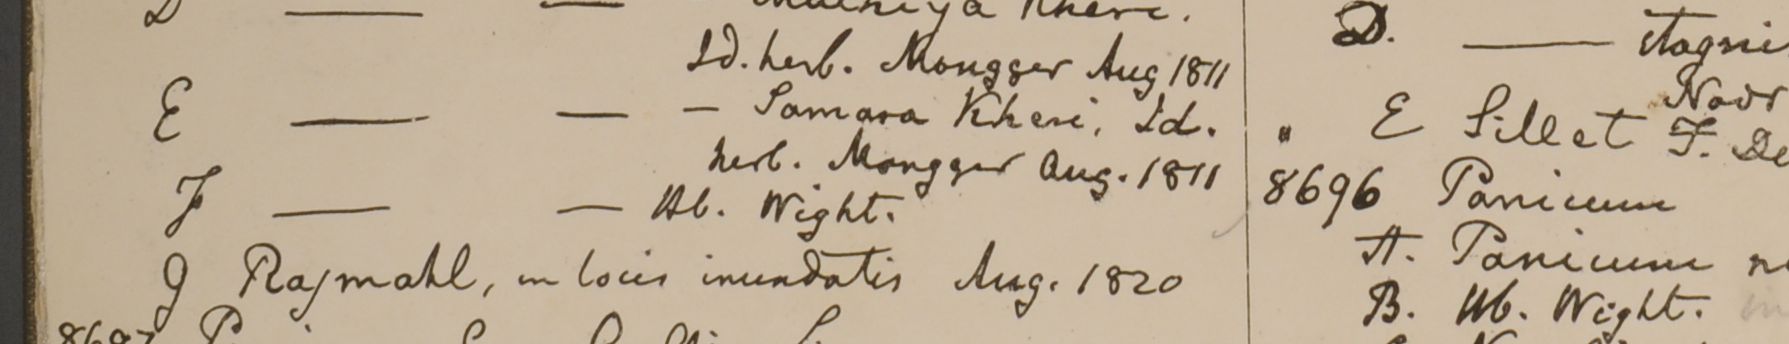 D — — Kheri.
Id. herb. Mongger Aug 1811
E — — – Samara Kheri, Id.
herb. Mongger Aug. 1811
F — — Hb. Wight.
G Rajmahl, in locis inundatis Aug. 1820
D. — stagni
Novr
" E Sillet F. De
8696 Panicum
A. Panicum
B. Hb. Wight.